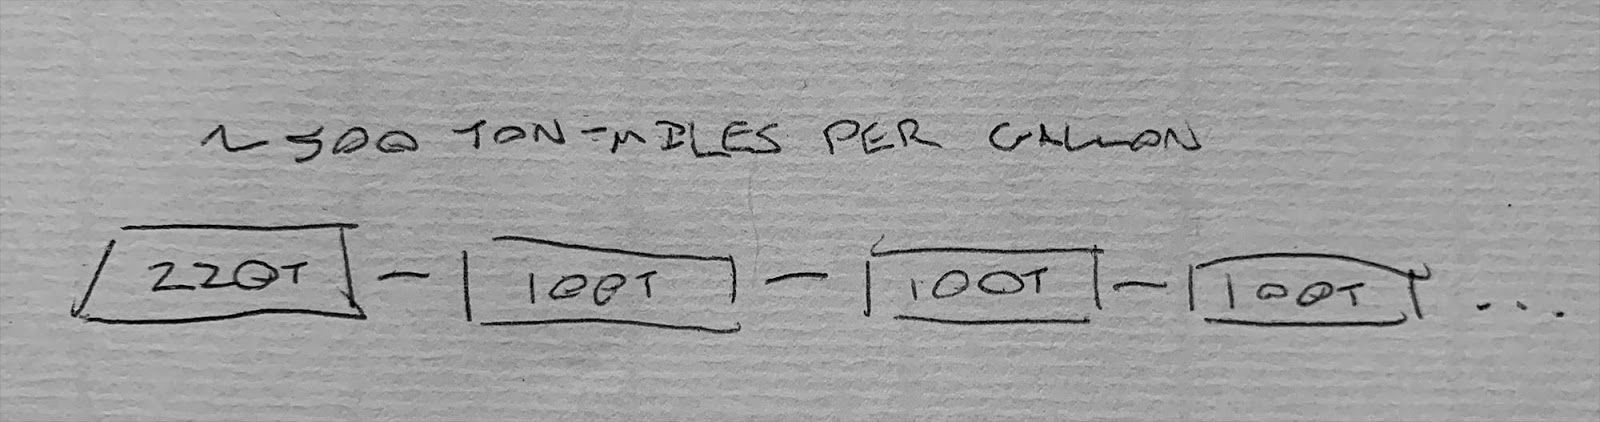 ~ 500 TON-MILES PER GALLON
220T - 100T - 100T - 100T ...